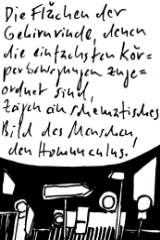 Die Flächen der
Gehirnrinde, denen
die einfachsten Kör=
perbewegungen zuge=
ordnet sind,
zeigen ein schematisches
Bild des Menschen,
den Homunculus.